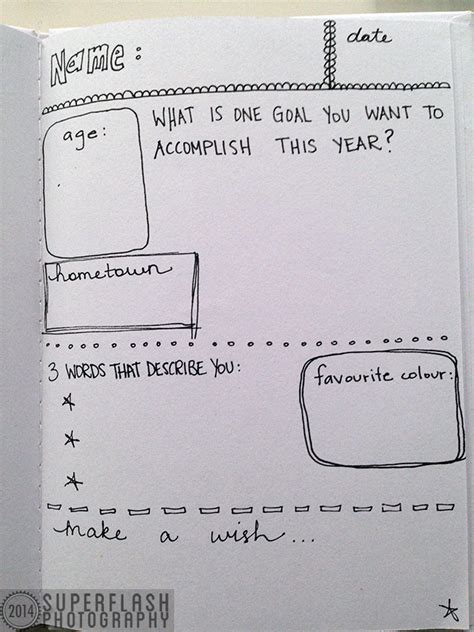 Name:
date
age:
WHAT IS ONE GOAL YOU WANT TO
ACCOMPLISH THIS YEAR?
hometown
3 WORDS THAT DESCRIBE YOU:
favourite colour:
make a wish...
2014 SUPERFLASH
PHOTOGRAPHY